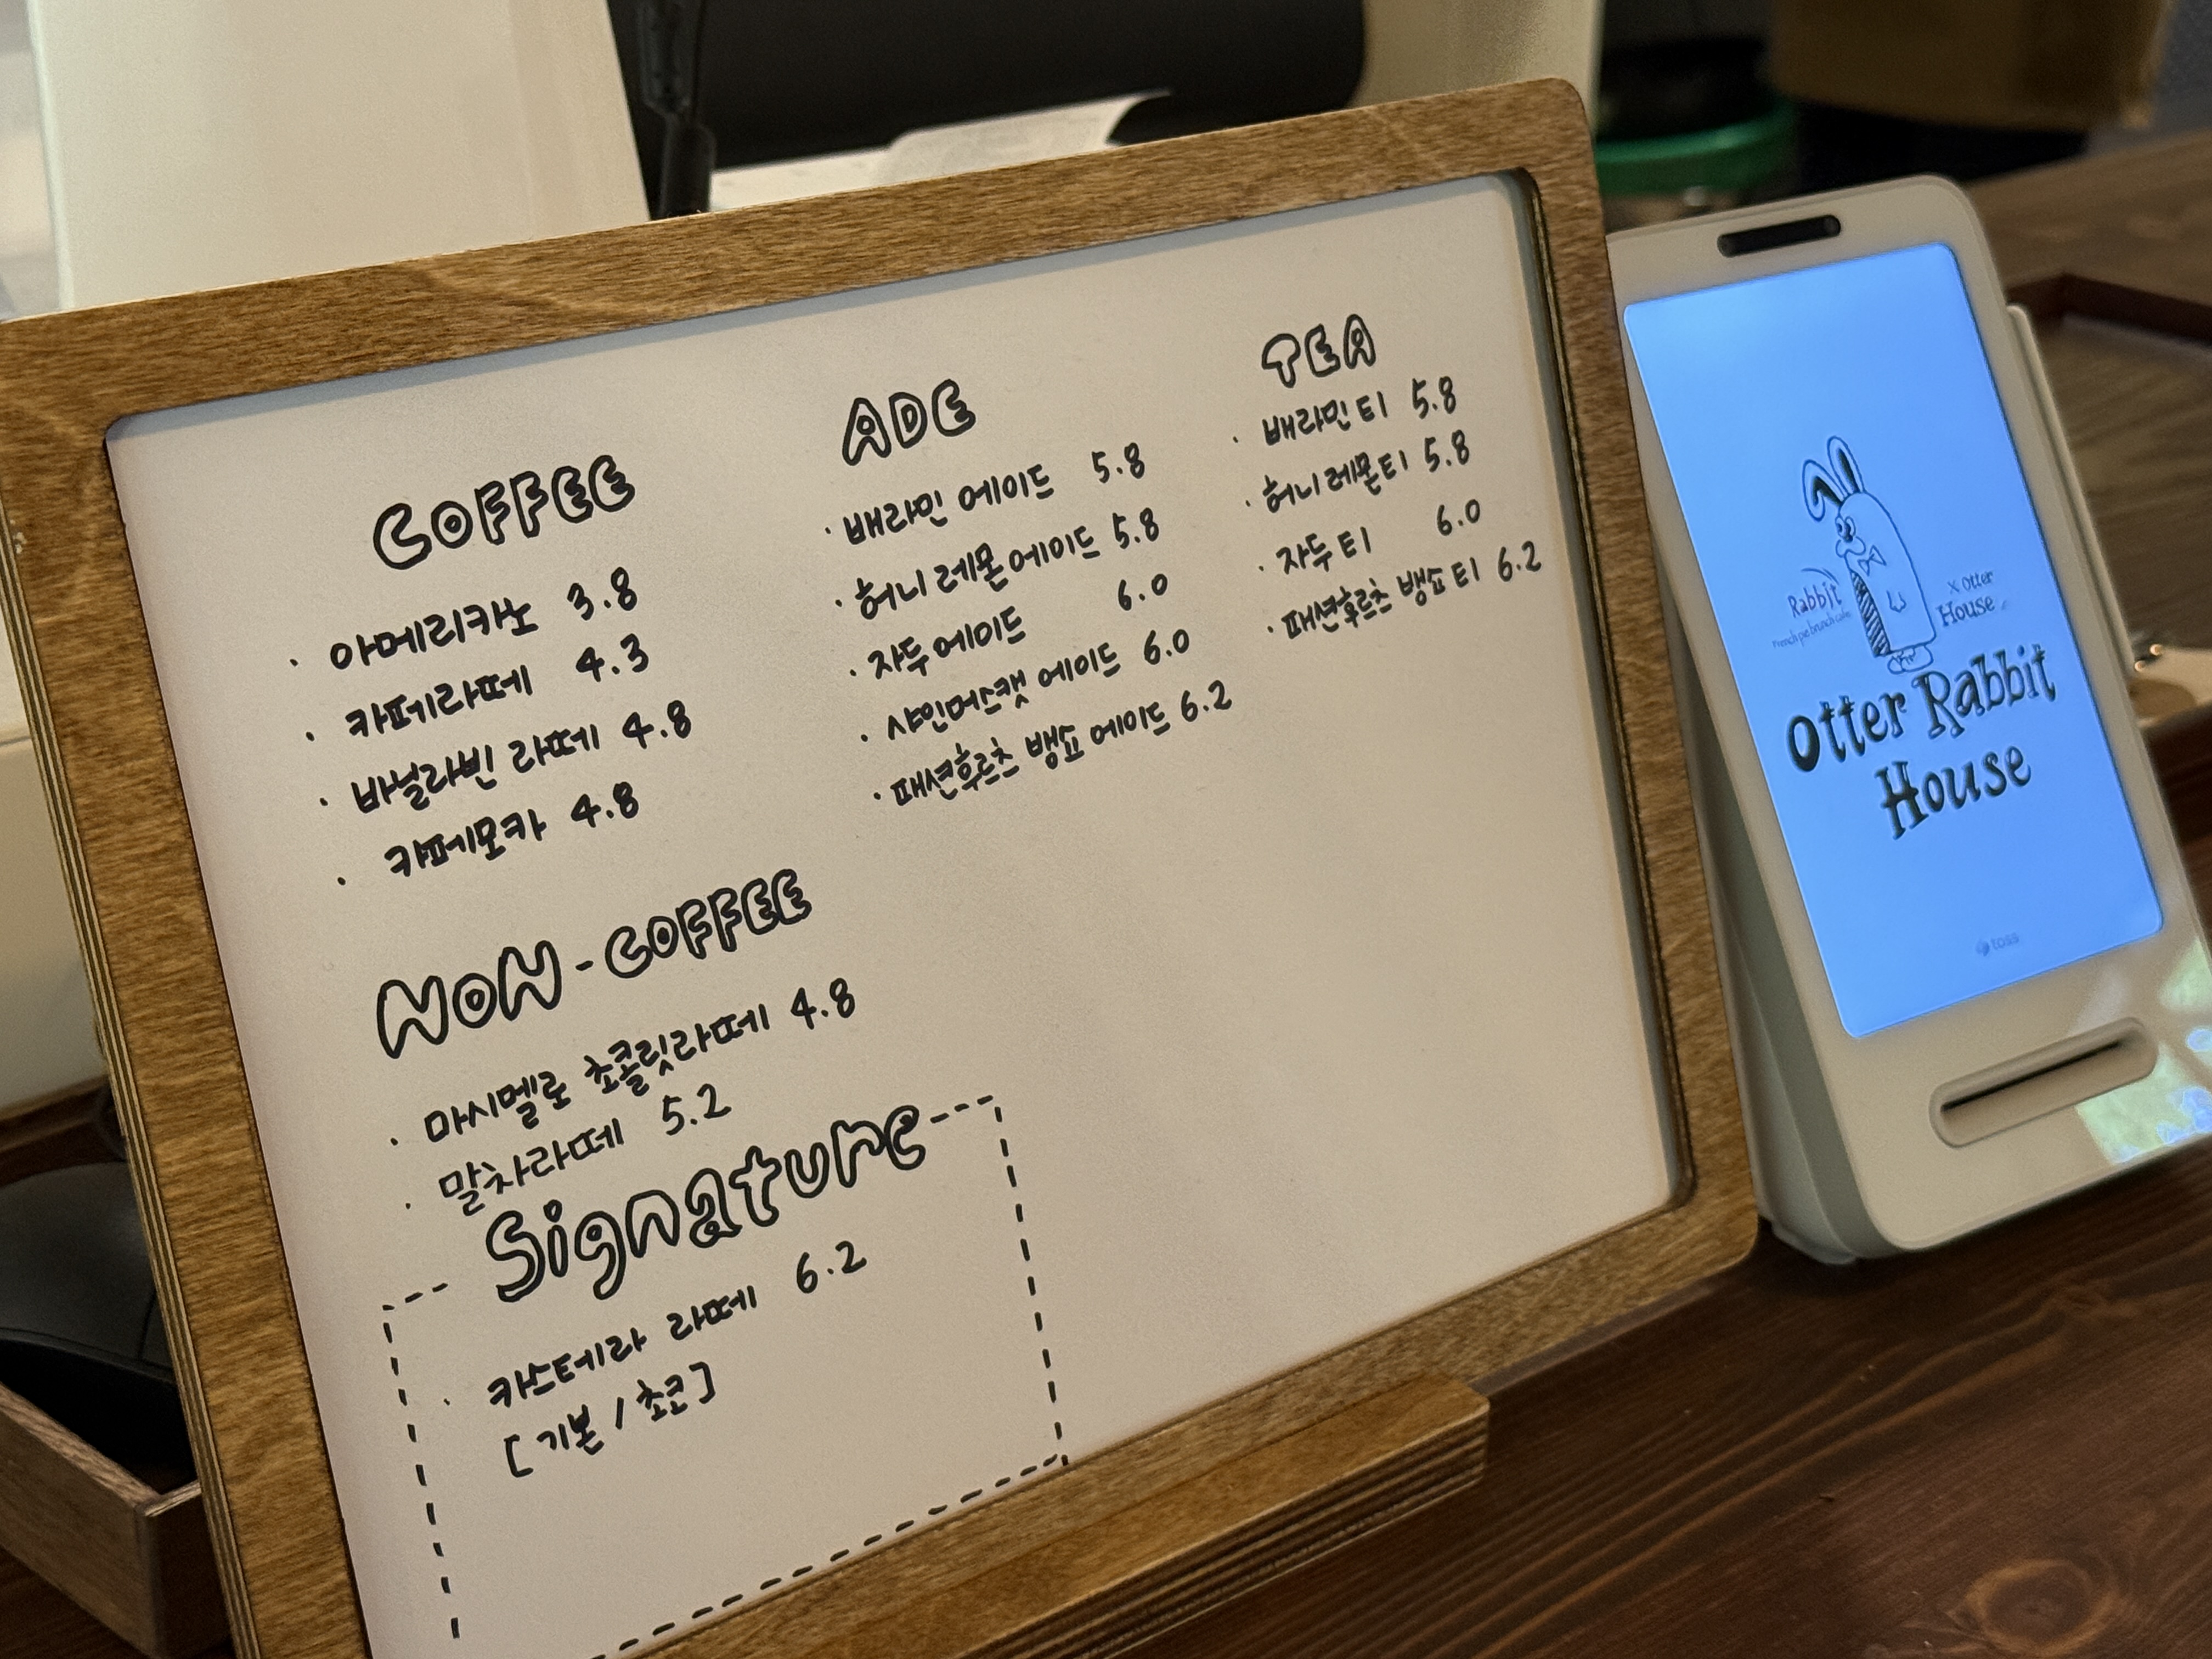 COFFEE
· 아메리카노 3.8
· 카페라떼 4.3
· 바닐라빈 라떼 4.8
· 카페모카 4.8
NON-COFFEE
· 마시멜로 초콜릿라떼 4.8
· 말차라떼 5.2
Signature
· 카스테라 라떼 6.2
[기본/초코]
ADE
· 배라민 에이드 5.8
· 허니레몬에이드 5.8
· 자두에이드 6.0
· 샤인머스캣 에이드 6.0
· 패션후르츠 뱅쇼 에이드 6.2
TEA
· 배라민티 5.8
· 허니레몬티 5.8
· 자두티 6.0
· 패션후르츠 뱅쇼티 6.2
Rabbit
French pie brunch cafe
X Otter
House
Otter Rabbit
House